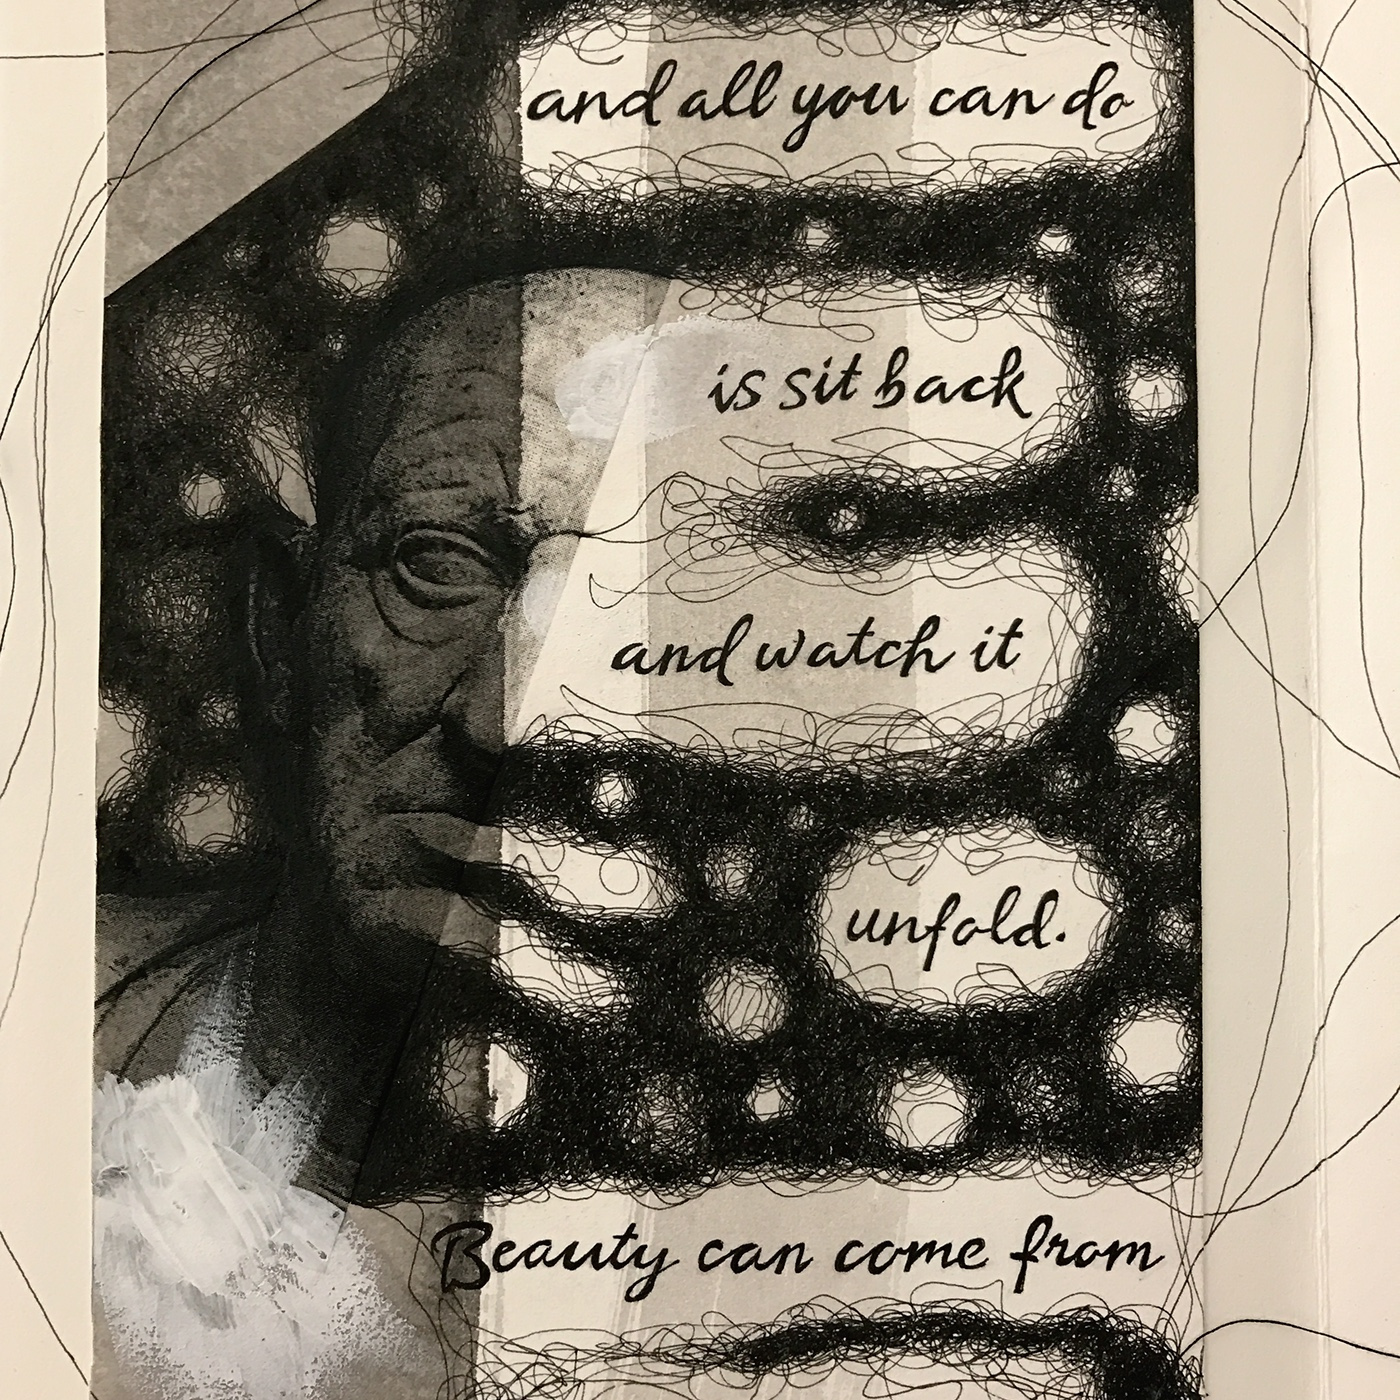 and all you can do
is sit back
and watch it
unfold.
Beauty can come from